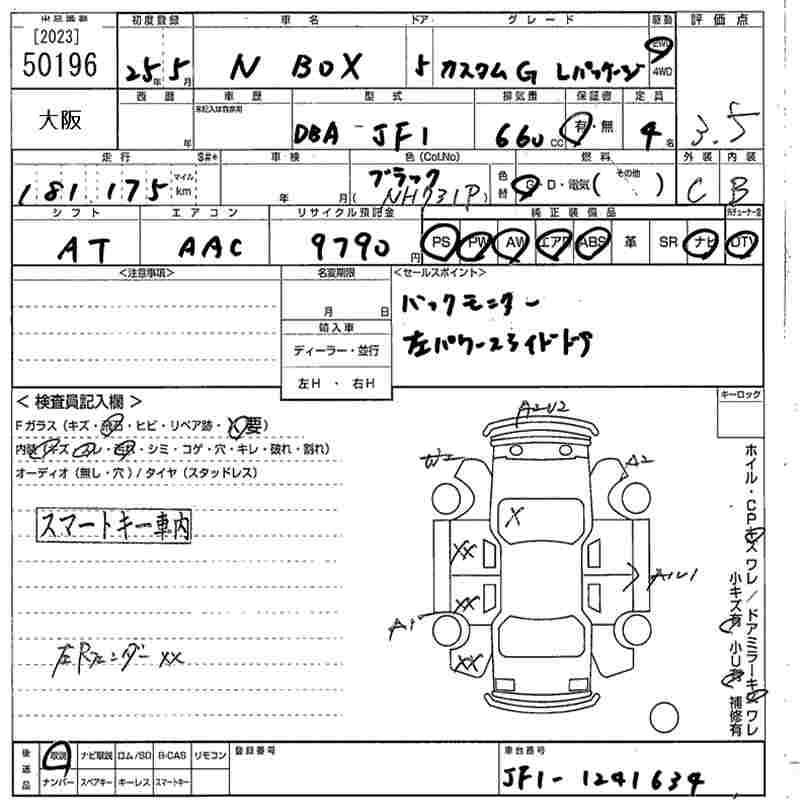 出品番号 初度登録 車名 ドア グレード 駆動 評価点
[2023]
50196 25年 5月 N BOX 5 カスタムG Lパッケージ 2WD 4WD
西暦 車歴 型式 排気量 保証書 定員
大阪 年 未記入は自家用 DBA-JF1 660cc 有・無 4名 3.5
走行 $#* 車検 色(Col.No) 燃料 外装 内装
181,175 マイル km 年 月 ブラック (NH731P) 色替 G・D・電気( その他 ) C B
シフト エアコン リサイクル預託金 純正装備品
AT AAC 9790円 PS PW AW エアB ABS 革 SR ナビ DTV
<注意事項> 名変期限 <セールスポイント>
月 日 バックモニター
輸入車
ディーラー・並行 左パワースライドドア
左H ・ 右H
＜検査員記入欄＞ キーロック
Fガラス(キズ・飛石・ヒビ・リペア跡・X要)
内装(キズ・ヨレ・汚れ・シミ・コゲ・穴・キレ・破れ・割れ)
オーディオ(無し・穴)/タイヤ(スタッドレス)
スマートキー車内
左Rフェンダー XX
A2U2
W2 A2
X
XX
XX A1U1
A1
XX
ホイル・CPキズ ワレ/ドアミラーキズ ワレ
小キズ有 小U有 補修有
後送品 取説 ナビ取説 ロム/SD B-CAS リモコン 登録番号 車台番号
ナンバー スペアキー キーレス スマートキー JF1-1241634